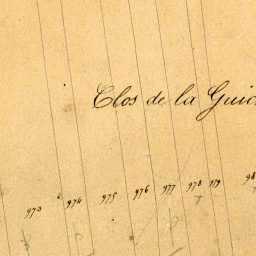 Clos de la
973 974 975 976 977 978 979